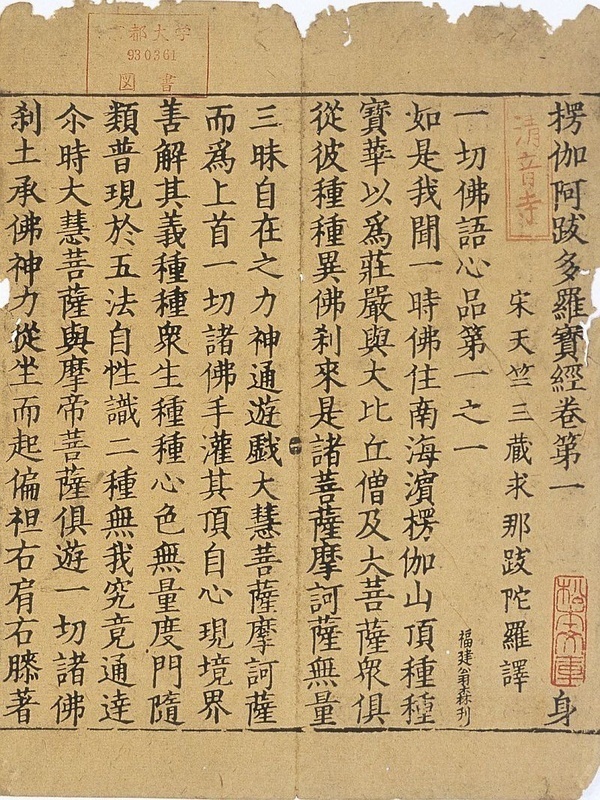 楞伽阿跋多羅寶經卷第一 身
宋天竺三藏求那跋陀羅譯
一切佛語心品第一之一
福建翁森刊
如是我聞一時佛住南海濵楞伽山頂種種
寶華以爲莊嚴與大比丘僧及大菩薩衆俱
從彼種種異佛刹來是諸菩薩摩訶薩無量
三昧自在之力神通遊戲大慧菩薩摩訶薩
而爲上首一切諸佛手灌其頂自心現境界
善解其義種種衆生種種心色無量度門隨
類普現於五法自性識二種無我究竟通達
尒時大慧菩薩與摩帝菩薩俱遊一切諸佛
刹土承佛神力從坐而起偏袒右肩右膝著
都大学
930361
図書
清音寺